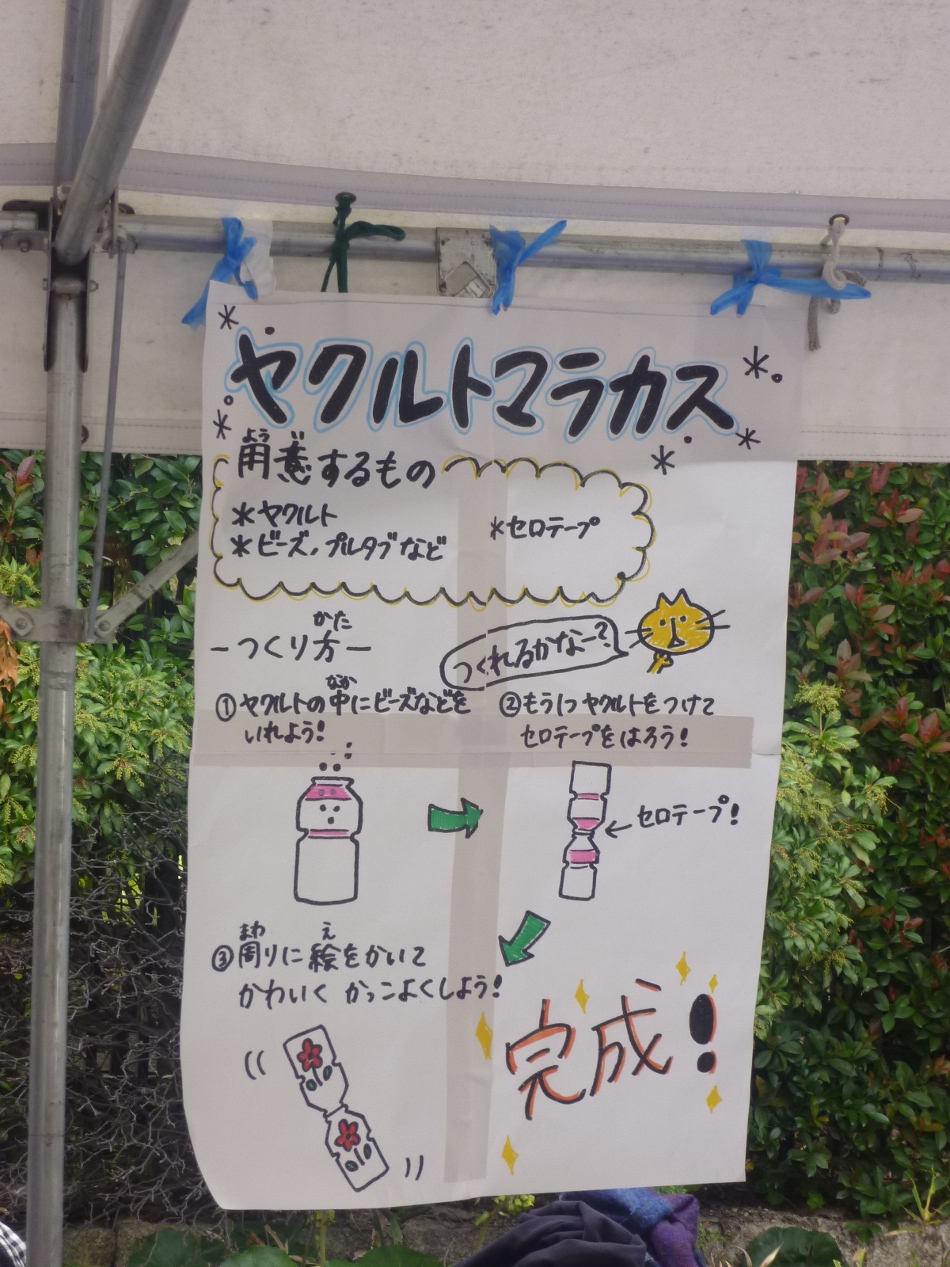 ヤクルトマラカス
よう い
用意するもの
*ヤクルト
*ビーズ、プルタブなど
*セロテープ
かた
-つくり方-
つくれるかなー?
なか
①ヤクルトの中にビーズなどを
いれよう!
②もう1つヤクルトをつけて
セロテープをはろう!
セロテープ!
まわ え
③周りに絵をかいて
かわいく かっこよくしよう!
完成!